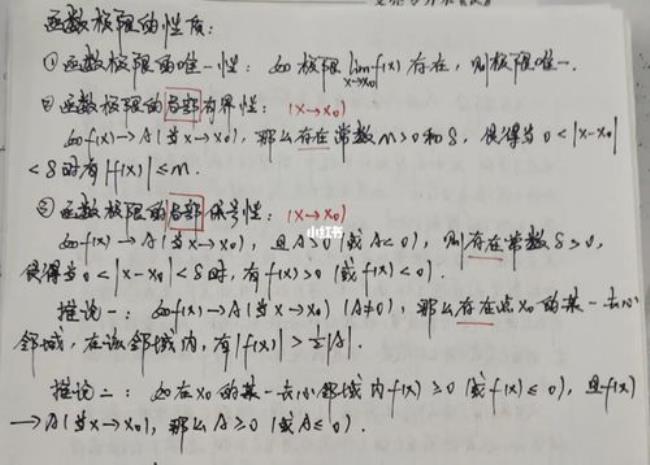 函数极限的性质:
①函数极限的唯一性: 如极限 lim f(x) 存在, 则极限唯一.
x→x₀
②函数极限的局部有界性: (x→x₀)
如f(x)→A(当x→x₀), 那么存在常数M>0和δ, 使得当0<|x-x₀|
<δ时有|f(x)|≤M.
③函数极限的局部保号性: (x→x₀)
小红书
如f(x)→A(当x→x₀), 且A>0(或A<0), 则存在常数δ>0,
使得当0<|x-x₀|<δ时, 有f(x)>0(或f(x)<0).
推论一: 如f(x)→A(当x→x₀)(A≠0), 那么存在点x₀的某一去心
邻域, 在该邻域内, 有|f(x)|>½|A|.
推论二: 如在x₀的某一去心邻域内f(x)≥0(或f(x)≤0), 且f(x)
→A(当x→x₀), 那么A≥0(或A≤0).